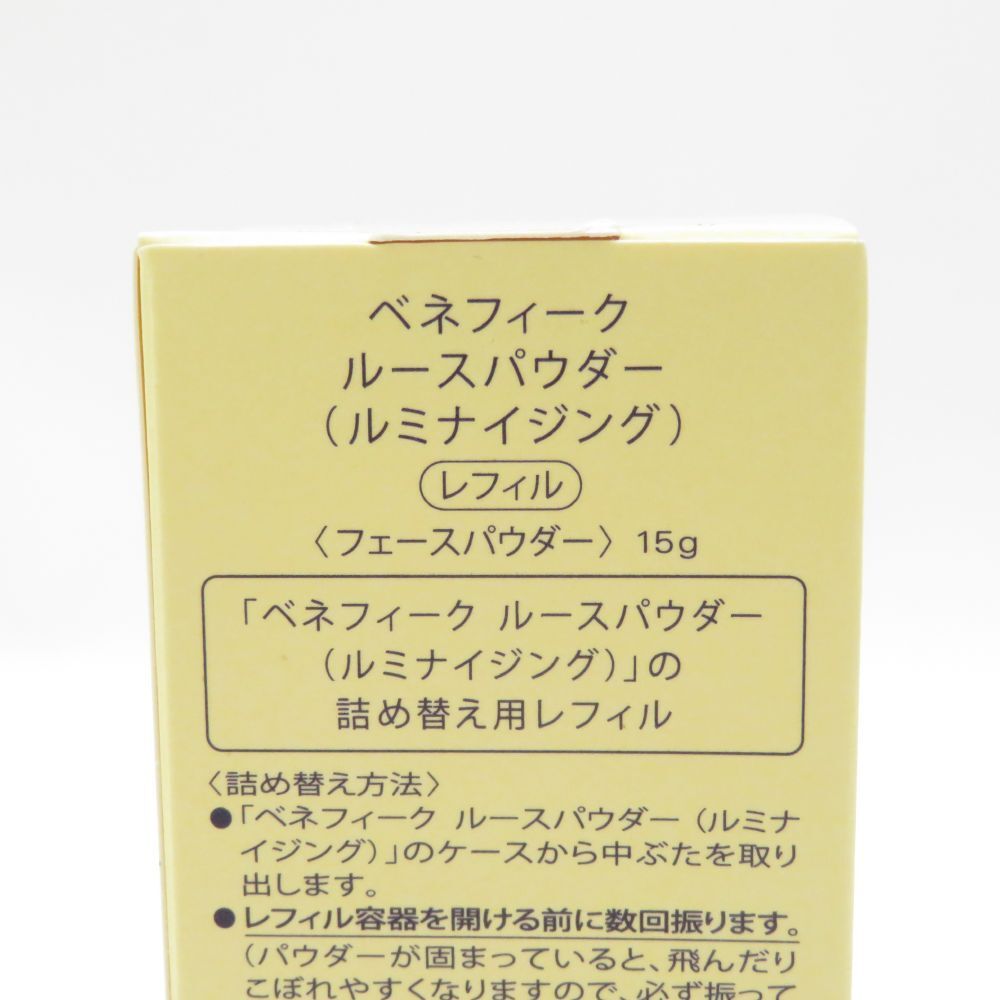 ベネフィーク
ルースパウダー
（ルミナイジング）
レフィル
〈フェースパウダー〉 15g
「ベネフィーク ルースパウダー
（ルミナイジング）」の
詰め替え用レフィル
〈詰め替え方法〉
●「ベネフィーク ルースパウダー（ルミナ
イジング）」のケースから中ぶたを取り
出します。
●レフィル容器を開ける前に数回振ります。
（パウダーが固まっていると、飛んだり
こぼれやすくなりますので、必ず振って